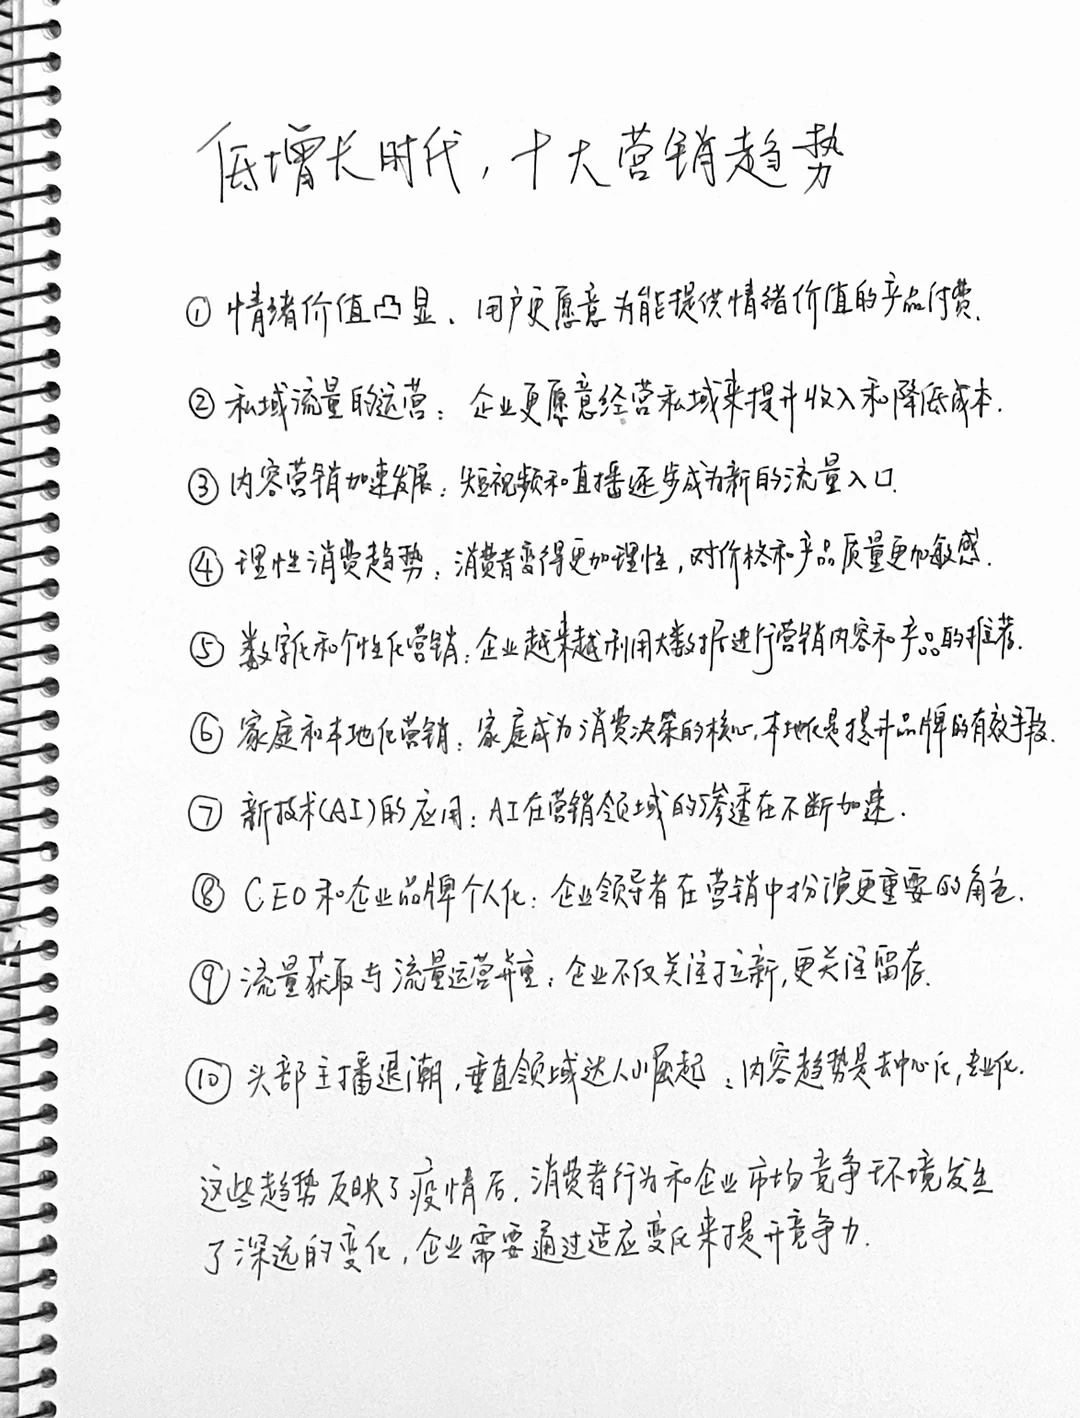 低增长时代，十大营销趋势
① 情绪价值凸显、用户更愿意为能提供情绪价值的产品付费.
② 私域流量的运营：企业更愿意经营私域来提升收入和降低成本.
③ 内容营销加速发展：短视频和直播逐步成为新的流量入口.
④ 理性消费趋势：消费者变得更加理性，对价格和产品质量更加敏感.
⑤ 数字化和个性化营销：企业越来越利用大数据进行营销内容和产品的推荐.
⑥ 家庭和本地化营销：家庭成为消费决策的核心，本地化是提升品牌的有效手段.
⑦ 新技术(AI)的应用：AI在营销领域的渗透在不断加速.
⑧ CEO和企业品牌个人化：企业领导者在营销中扮演更重要的角色.
⑨ 流量获取与流量运营并重：企业不仅关注拉新，更关注留存.
⑩ 头部主播退潮，垂直领域达人崛起：内容趋势是去中心化，专业化.
这些趋势反映了疫情后，消费者行为和企业市场竞争环境发生
了深远的变化，企业需要通过适应变化来提升竞争力.